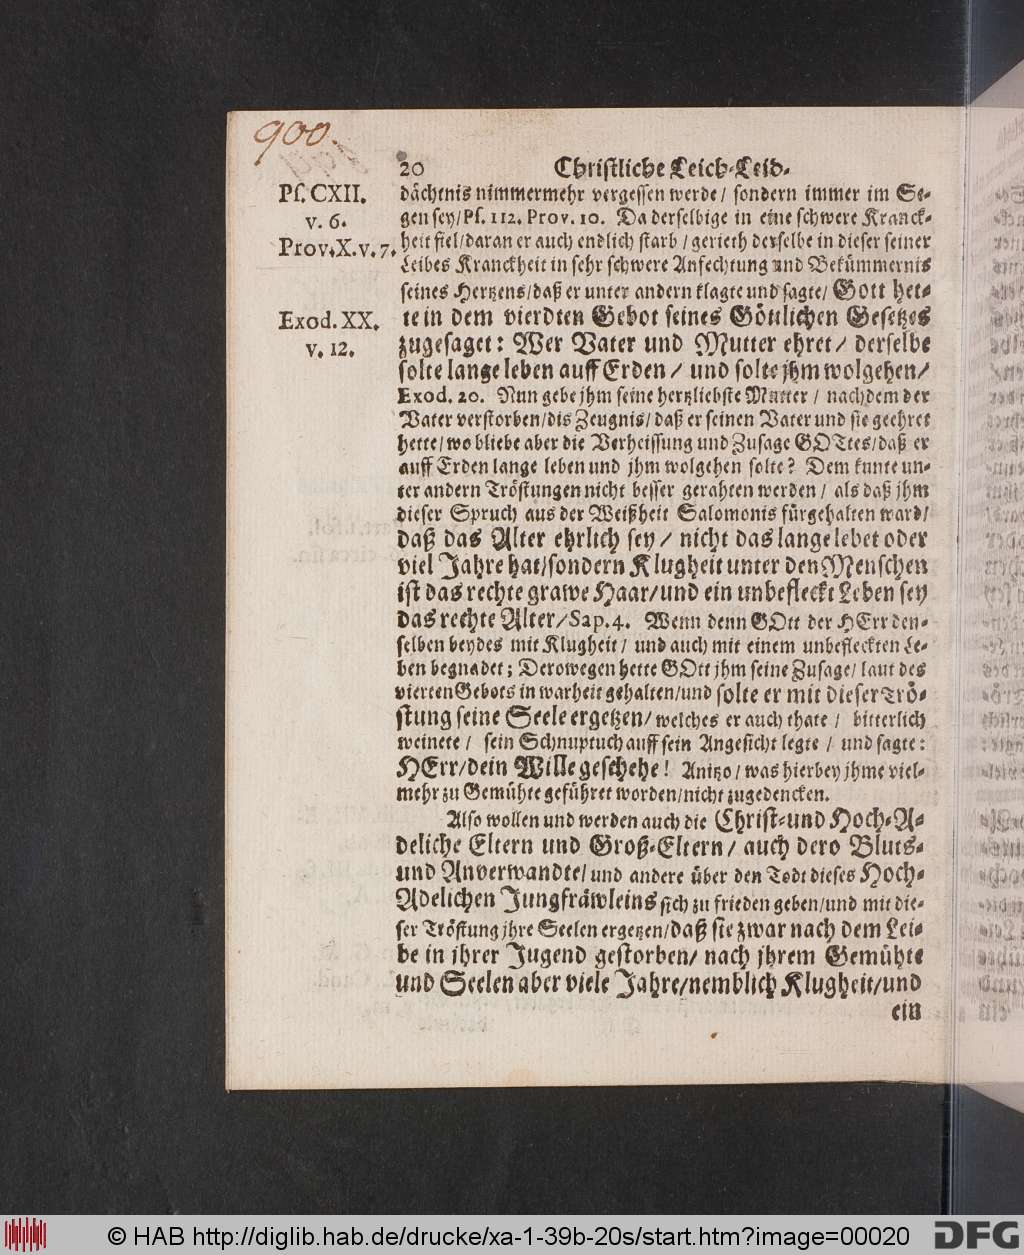 900.
20 Christliche Leich-Leid-
Ps. CXII.
v. 6.
Prov. X. v. 7.
Exod. XX.
v. 12.
dächtnis nimmermehr vergessen werde / sondern immer im Se-
gen sey / Ps. 112. Prov. 10. Da derselbige in eine schwere Kranck-
heit fiel / daran er auch endlich starb / gerieth derselbe in dieser seiner
Leibes Kranckheit in sehr schwere Anfechtung und Bekümmernis
seines Hertzens / daß er unter andern klagte und sagte / Gott het-
te in dem vierdten Gebot seines Göttlichen Gesetzes
zugesaget: Wer Vater und Mutter ehret / derselbe
solte lange leben auff Erden / und solte jhm wolgehen /
Exod. 20. Nun gebe jhm seine hertzliebste Mutter / nachdem der
Vater verstorben / dis Zeugnis / daß er seinen Vater und sie geehret
hette / wo bliebe aber die Verheissung und Zusage GOTtes / daß er
auff Erden lange leben und jhm wolgehen solte? Dem kunte un-
ter andern Tröstungen nicht besser gerahten werden / als daß jhm
dieser Spruch aus der Weißheit Salomonis fürgehalten ward /
daß das Alter ehrlich sey / nicht das lange lebet oder
viel Jahre hat / sondern Klugheit unter den Menschen
ist das rechte grawe Haar / und ein unbefleckt Leben sey
das rechte Alter / Sap. 4. Wenn denn GOtt der HErr den-
selben beydes mit Klugheit / und auch mit einem unbefleckten Le-
ben begnadet; Derowegen hette GOtt jhm seine Zusage / laut des
vierten Gebots in warheit gehalten / und solte er mit dieser Trö-
stung seine Seele ergetzen / welches er auch thate / bitterlich
weinete / sein Schnuptuch auff sein Angesicht legte / und sagte:
HErr / dein Wille geschehe! Anitzo / was hierbey jhme viel-
mehr zu Gemühte geführet worden / nicht zugedencken.
Also wollen und werden auch die Christ- und Hoch-A-
deliche Eltern und Groß-Eltern / auch dero Bluts-
und Anverwandte / und andere über den Todt dieses Hoch-
Adelichen Jungfräwleins sich zu frieden geben / und mit die-
ser Tröstung jhre Seelen ergetzen / daß sie zwar nach dem Lei-
be in jhrer Jugend gestorben / nach jhrem Gemühte
und Seelen aber viele Jahre / nemblich Klugheit / und
ein
© HAB http://diglib.hab.de/drucke/xa-1-39b-20s/start.htm?image=00020
DFG